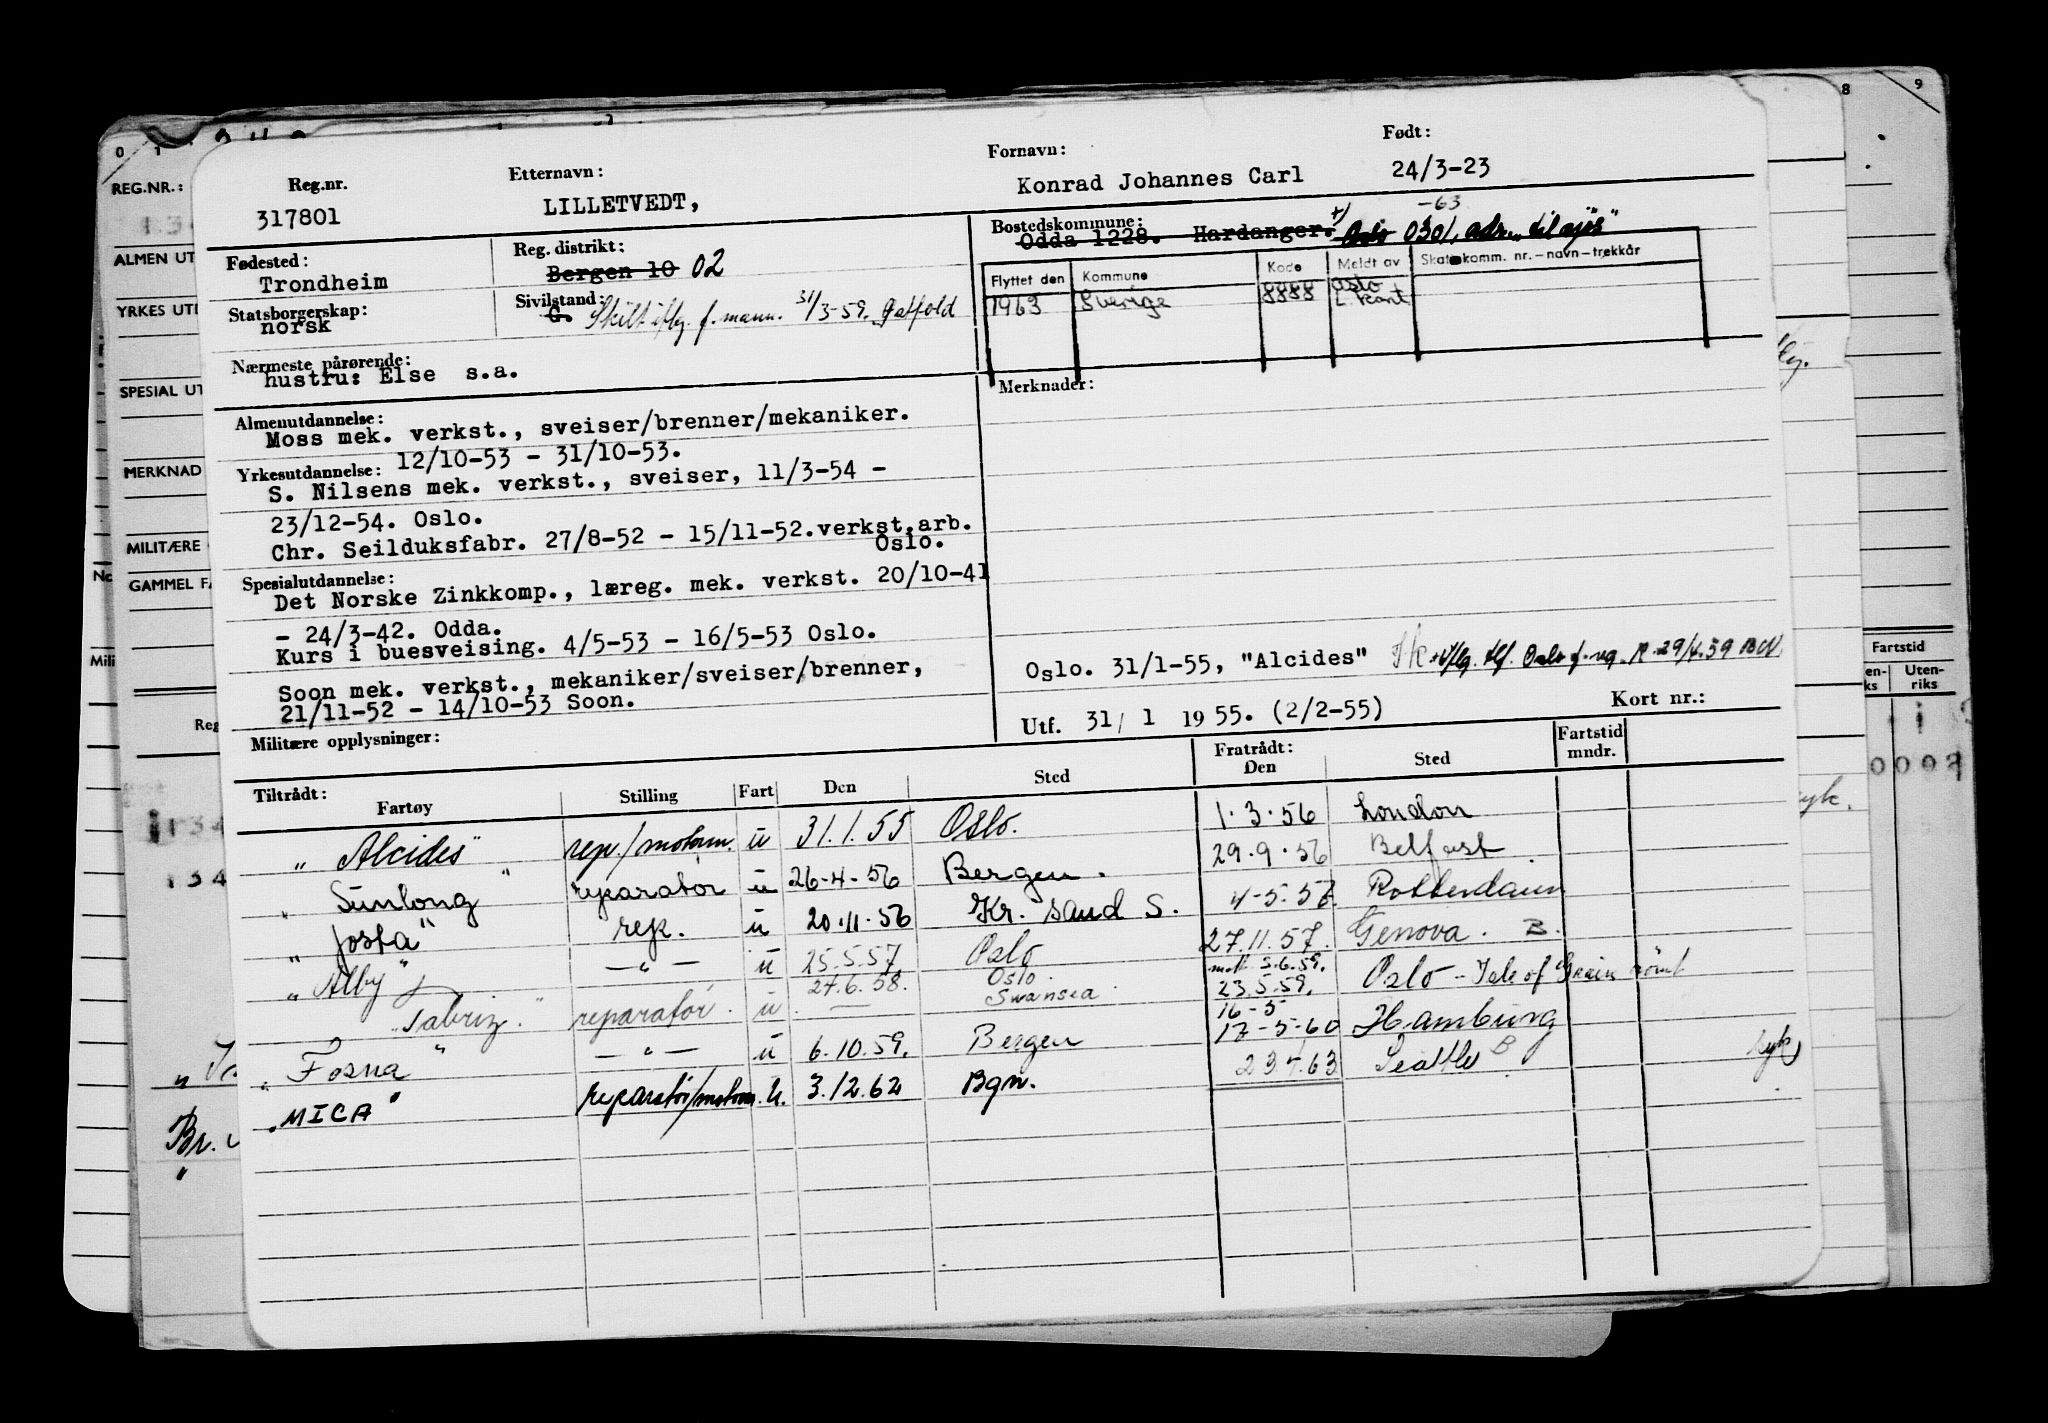 Reg.nr. Etternavn: Fornavn: Født:
317801 LILLETVEDT, Konrad Johannes Carl 24/3-23
Fødested: Trondheim
Reg. distrikt: Bergen 10 02
Bostedskommune: Odda 1228. Hardanger. +) -63 Oslo 0301, adr. "til sjøs"
Statsborgerskap: norsk
Sivilstand: G. Skilt iflg. f. mann. 31/3-59.
Flyttet den Kommune Kode Meldt av Skattekomm. nr.-navn-trekkår
1963 Sverige 8888 Oslo
L kart
Nærmeste pårørende: hustru: Else s.a.
Merknader:
Almenutdannelse:
Moss mek. verkst., sveiser/brenner/mekaniker.
12/10-53 - 31/10-53.
Yrkesutdannelse:
S. Nilsens mek. verkst., sveiser, 11/3-54 -
23/12-54. Oslo.
Chr. Seilduksfabr. 27/8-52 - 15/11-52.verkst.arb.
Oslo.
Spesialutdannelse:
Det Norske Zinkkomp., læreg. mek. verkst. 20/10-41
- 24/3-42. Odda.
Kurs i buesveising. 4/5-53 - 16/5-53 Oslo.
Soon mek. verkst., mekaniker/sveiser/brenner,
21/11-52 - 14/10-53 Soon.
Oslo. 31/1-55, "Alcides"
Utf. 31/ 1 1955. (2/2-55) Kort nr.:
Militære opplysninger:
Tiltrådt: Fratrådt: Fartstid
Fartøy Stilling Fart Den Sted Den Sted mndr.
"Alcides" rep./motorm. u 31.1.55 Oslo. 1.3.56 London
"Sunlong" reparatør u 26-4-56 Bergen. 29.9.56 Belfast
"Josta" rep. u 20.11.56 Kr. sand S. 4-5-57 Rotterdam
"Alby" — " — u 25.5.57 Oslo 27.11.57. Genova. B.
27.6.58. Oslo. 5.6.59.
"Tabriz." reparatør. u — Swansea 23.5.59. Oslo - Isle of Grain rømt
16-5
"Fosna" — " — u 6.10.59. Bergen 17-5-60 Hamburg
"MICA" reparatør/motorm. U. 3.12.62 Bgn. Seattle B syk
REG.NR.:
ALMEN UT
YRKES UTD
SPESIAL UT
MERKNAD
MILITÆRE
GAMMEL FA
Mili
Reg
Br.
0 1 8 9
Fartstid
en-
ks
Uten-
riks